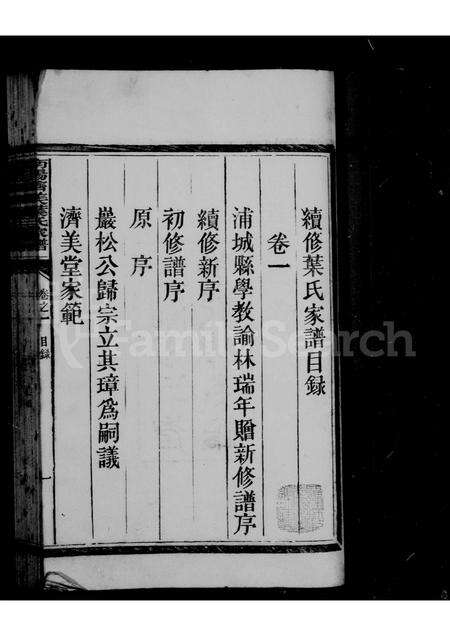 續修葉氏家譜目録
卷一
浦城縣學教諭林瑞年贈新修譜序
續修新序
初修譜序
原序
巖松公歸宗立其璋爲嗣議
濟美堂家範
卷之一 目録 一
FamilySearch